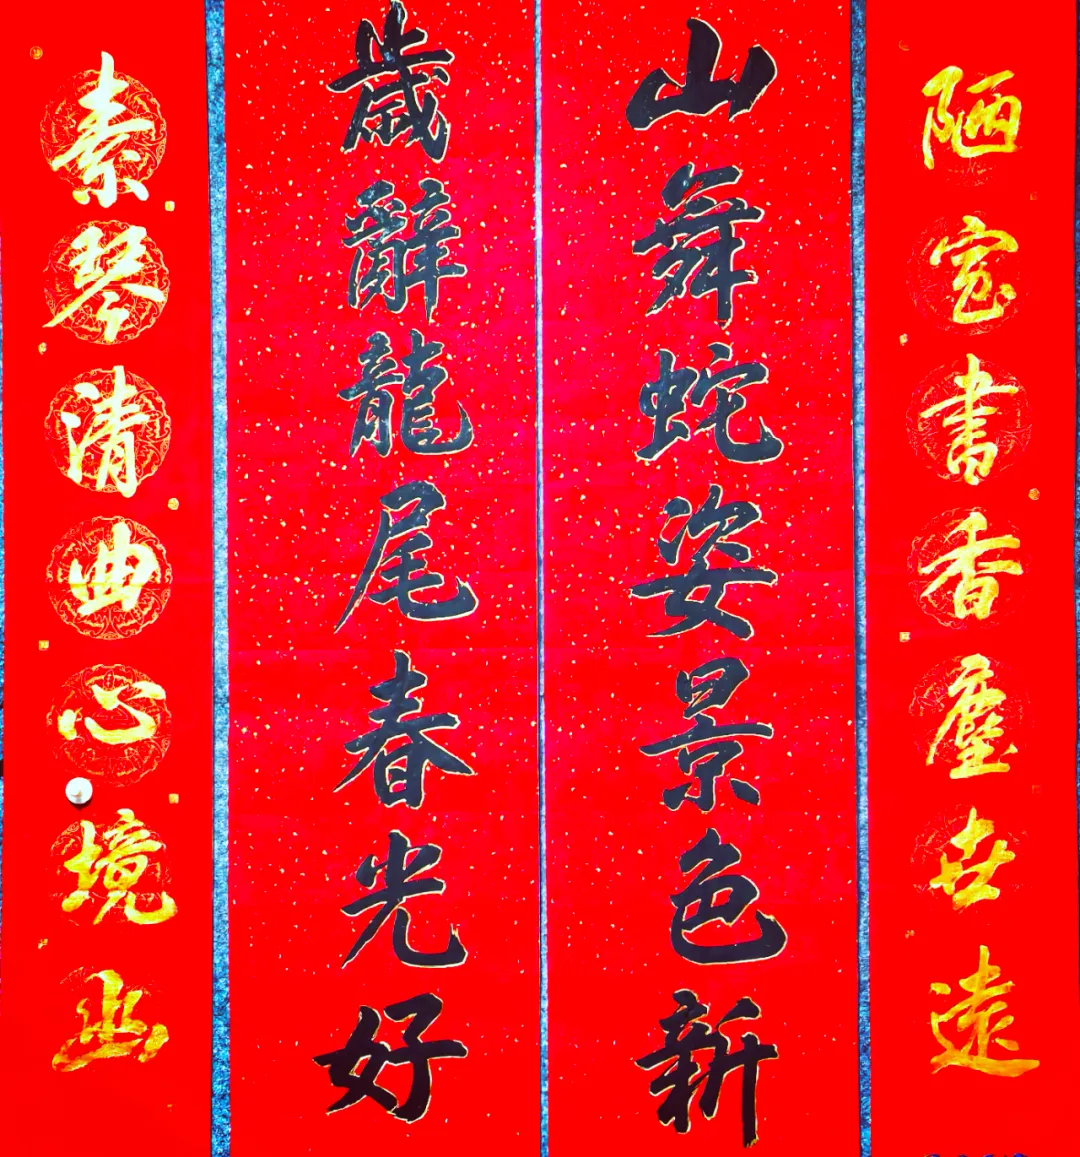 陋室書香塵世遠
山舞蛇姿景色新
歲辭龍尾春光好
素琴清曲心境幽